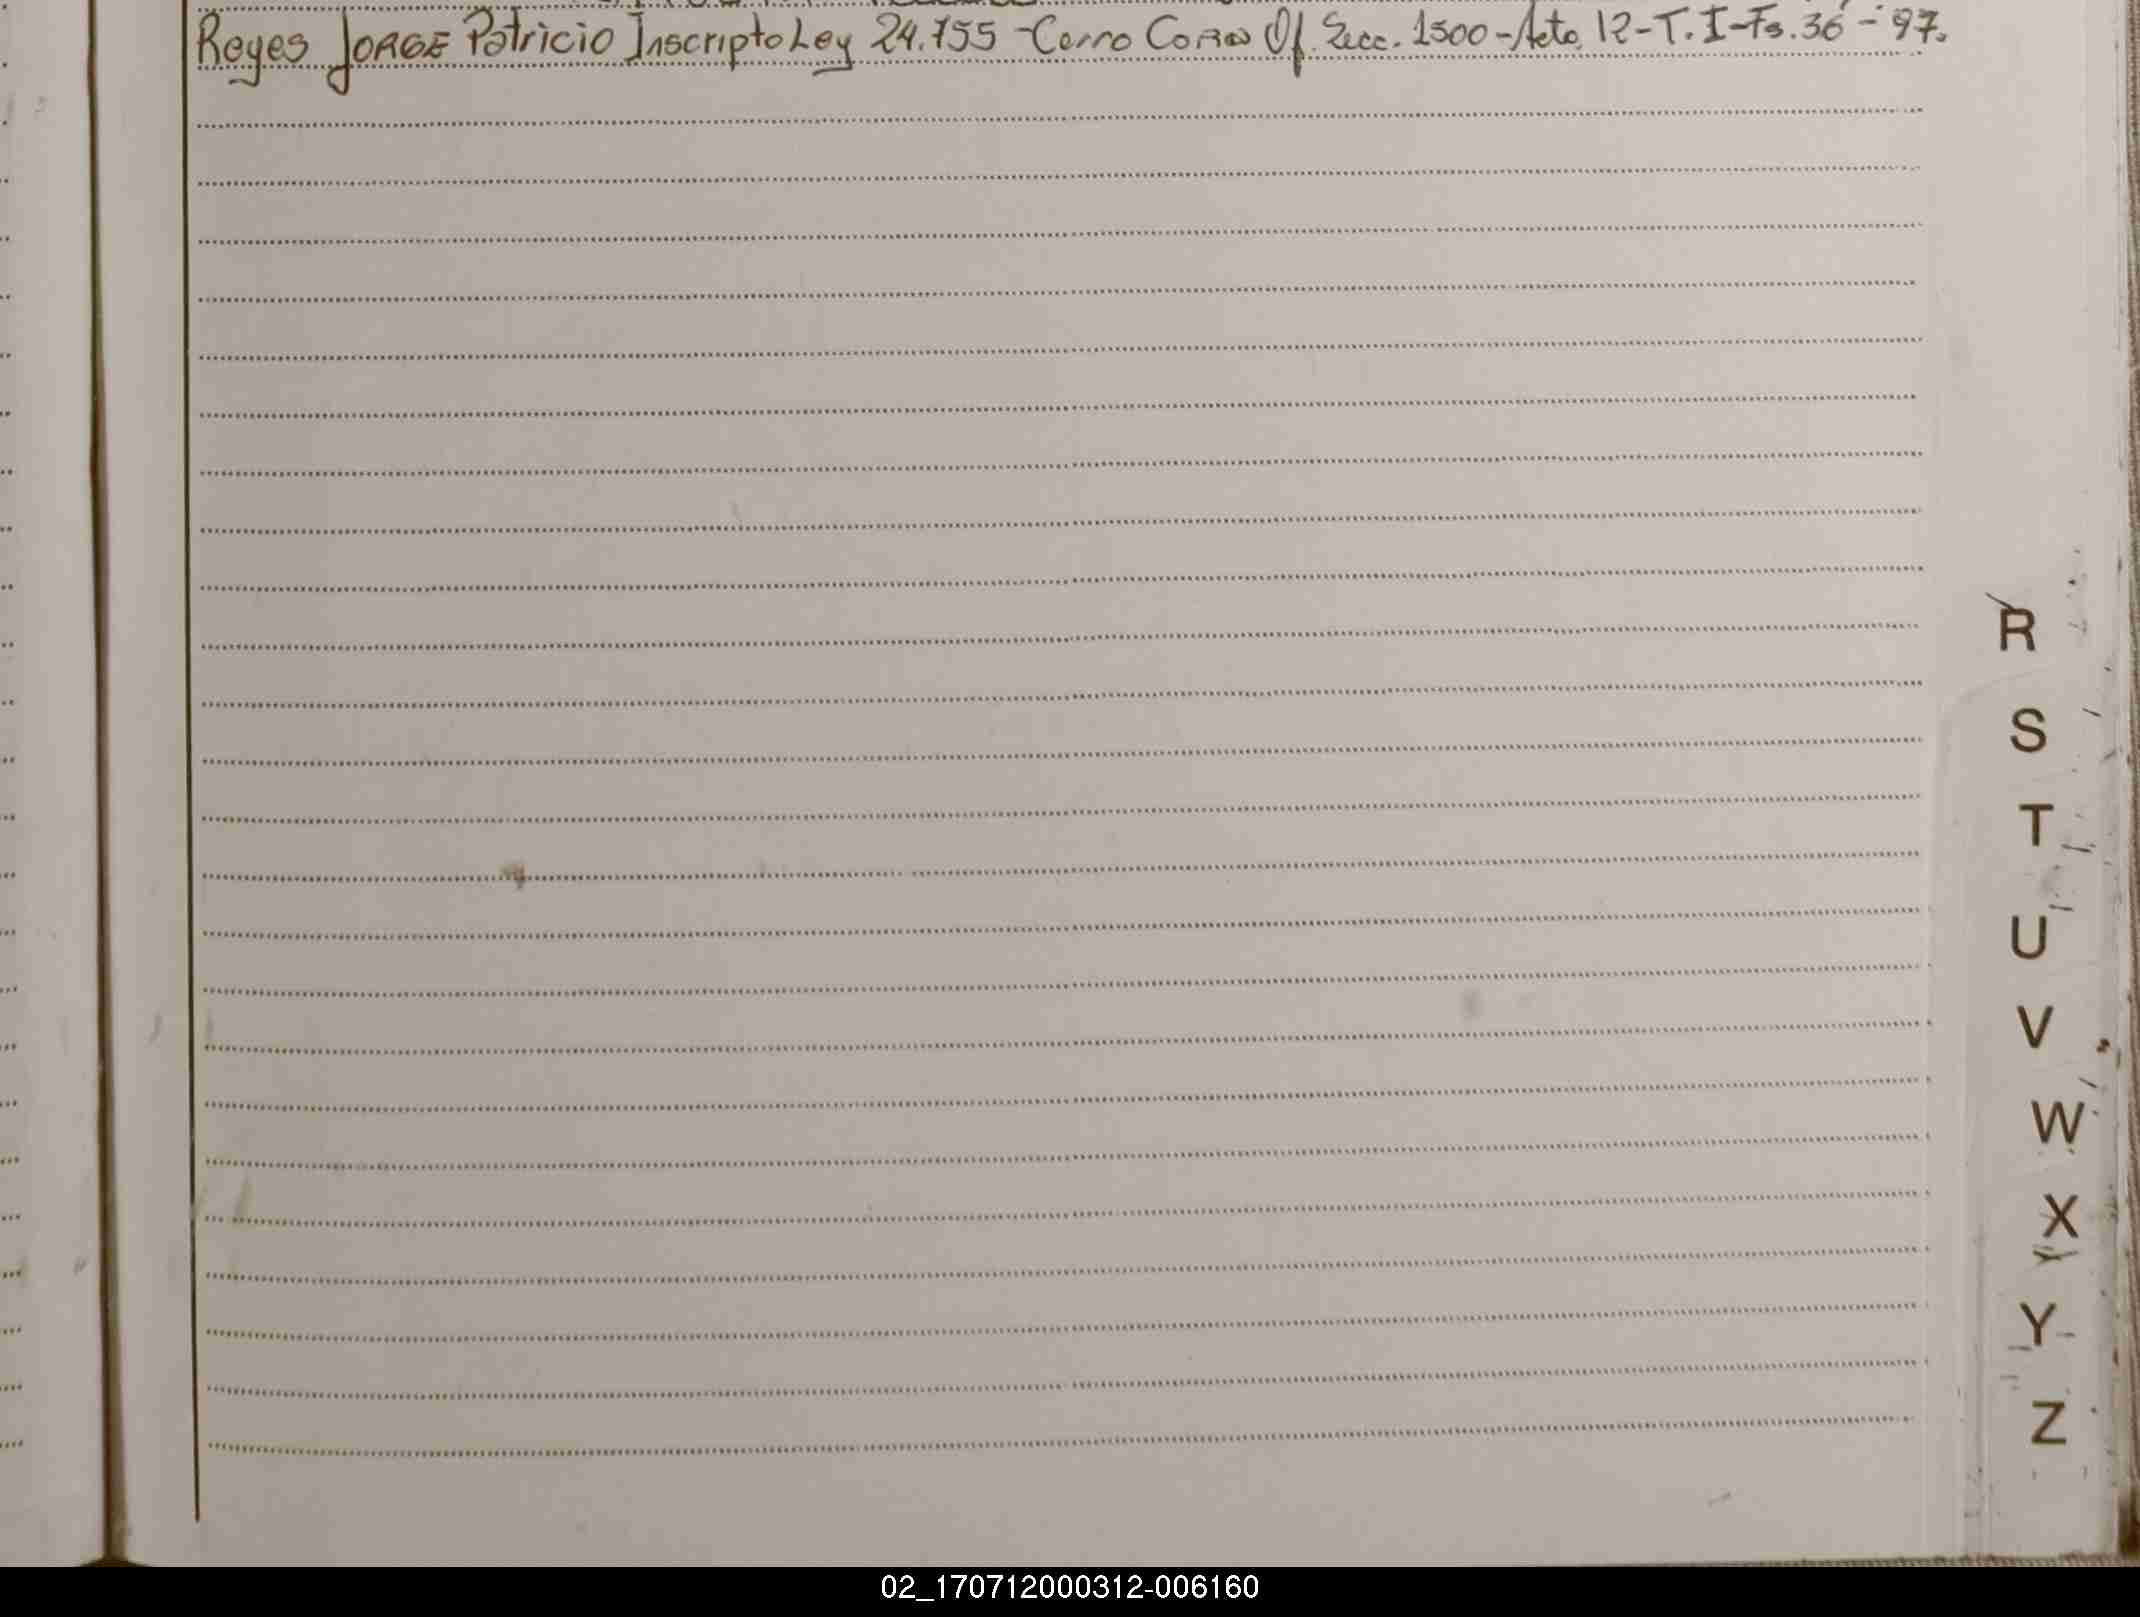 Reyes JORGE Patricio Inscripto Ley 24.755 - Cerro Cora Of. Secc. 1500 - Acta 12 - T. I - Fs. 36 - 97.
R
S
T
U
V
W
X
Y
Z
02_170712000312-006160